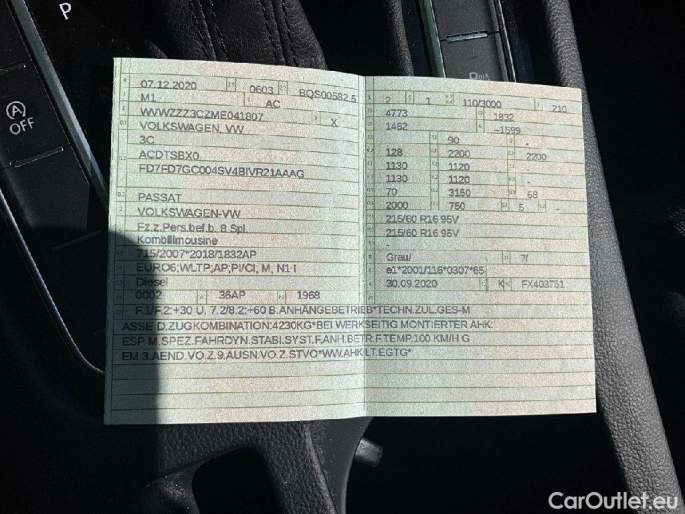 P
OFF
07.12.2020 0603 BQS00582 5
M1 AC
WVWZZZ3CZME041807 X
VOLKSWAGEN, VW
3C
ACDTSBX0
FD7FD7GC004SV4BIVR21AAAG
PASSAT
VOLKSWAGEN-VW
Fz.z.Pers.bef.b. 8 Spl.
Kombilimousine
715/2007*2018/1832AP
EURO6;WLTP;AP;PI/CI; M, N1 I
Diesel
0002 36AP 1968
2 1 110/3000 210
4773 1832
1462 -1599
90 -
128 2200 2200
1130 1120 -
1130 1120 -
79 3150 68
2000 750 5 -
215/60 R16 95V
215/60 R16 95V
-
Grau/ 7/
e1*2001/116*0307*65
30.09.2020 K FX403751
F.1/F.2:+30 U. 7.2/8.2:+60 B.ANHÄNGEBETRIEB*TECHN.ZUL.GES-M
ASSE D.ZUGKOMBINATION:4230KG*BEI WERKSEITIG MONTIERTER AHK:
ESP M.SPEZ.FAHRDYN.STABI.SYST.F.ANH.BETR.F.TEMP.100 KM/H G
EM.3.AEND.VO.Z.9.AUSN.VO.Z.STVO*WW.AHK LT.EGTG*
CarOutlet.eu